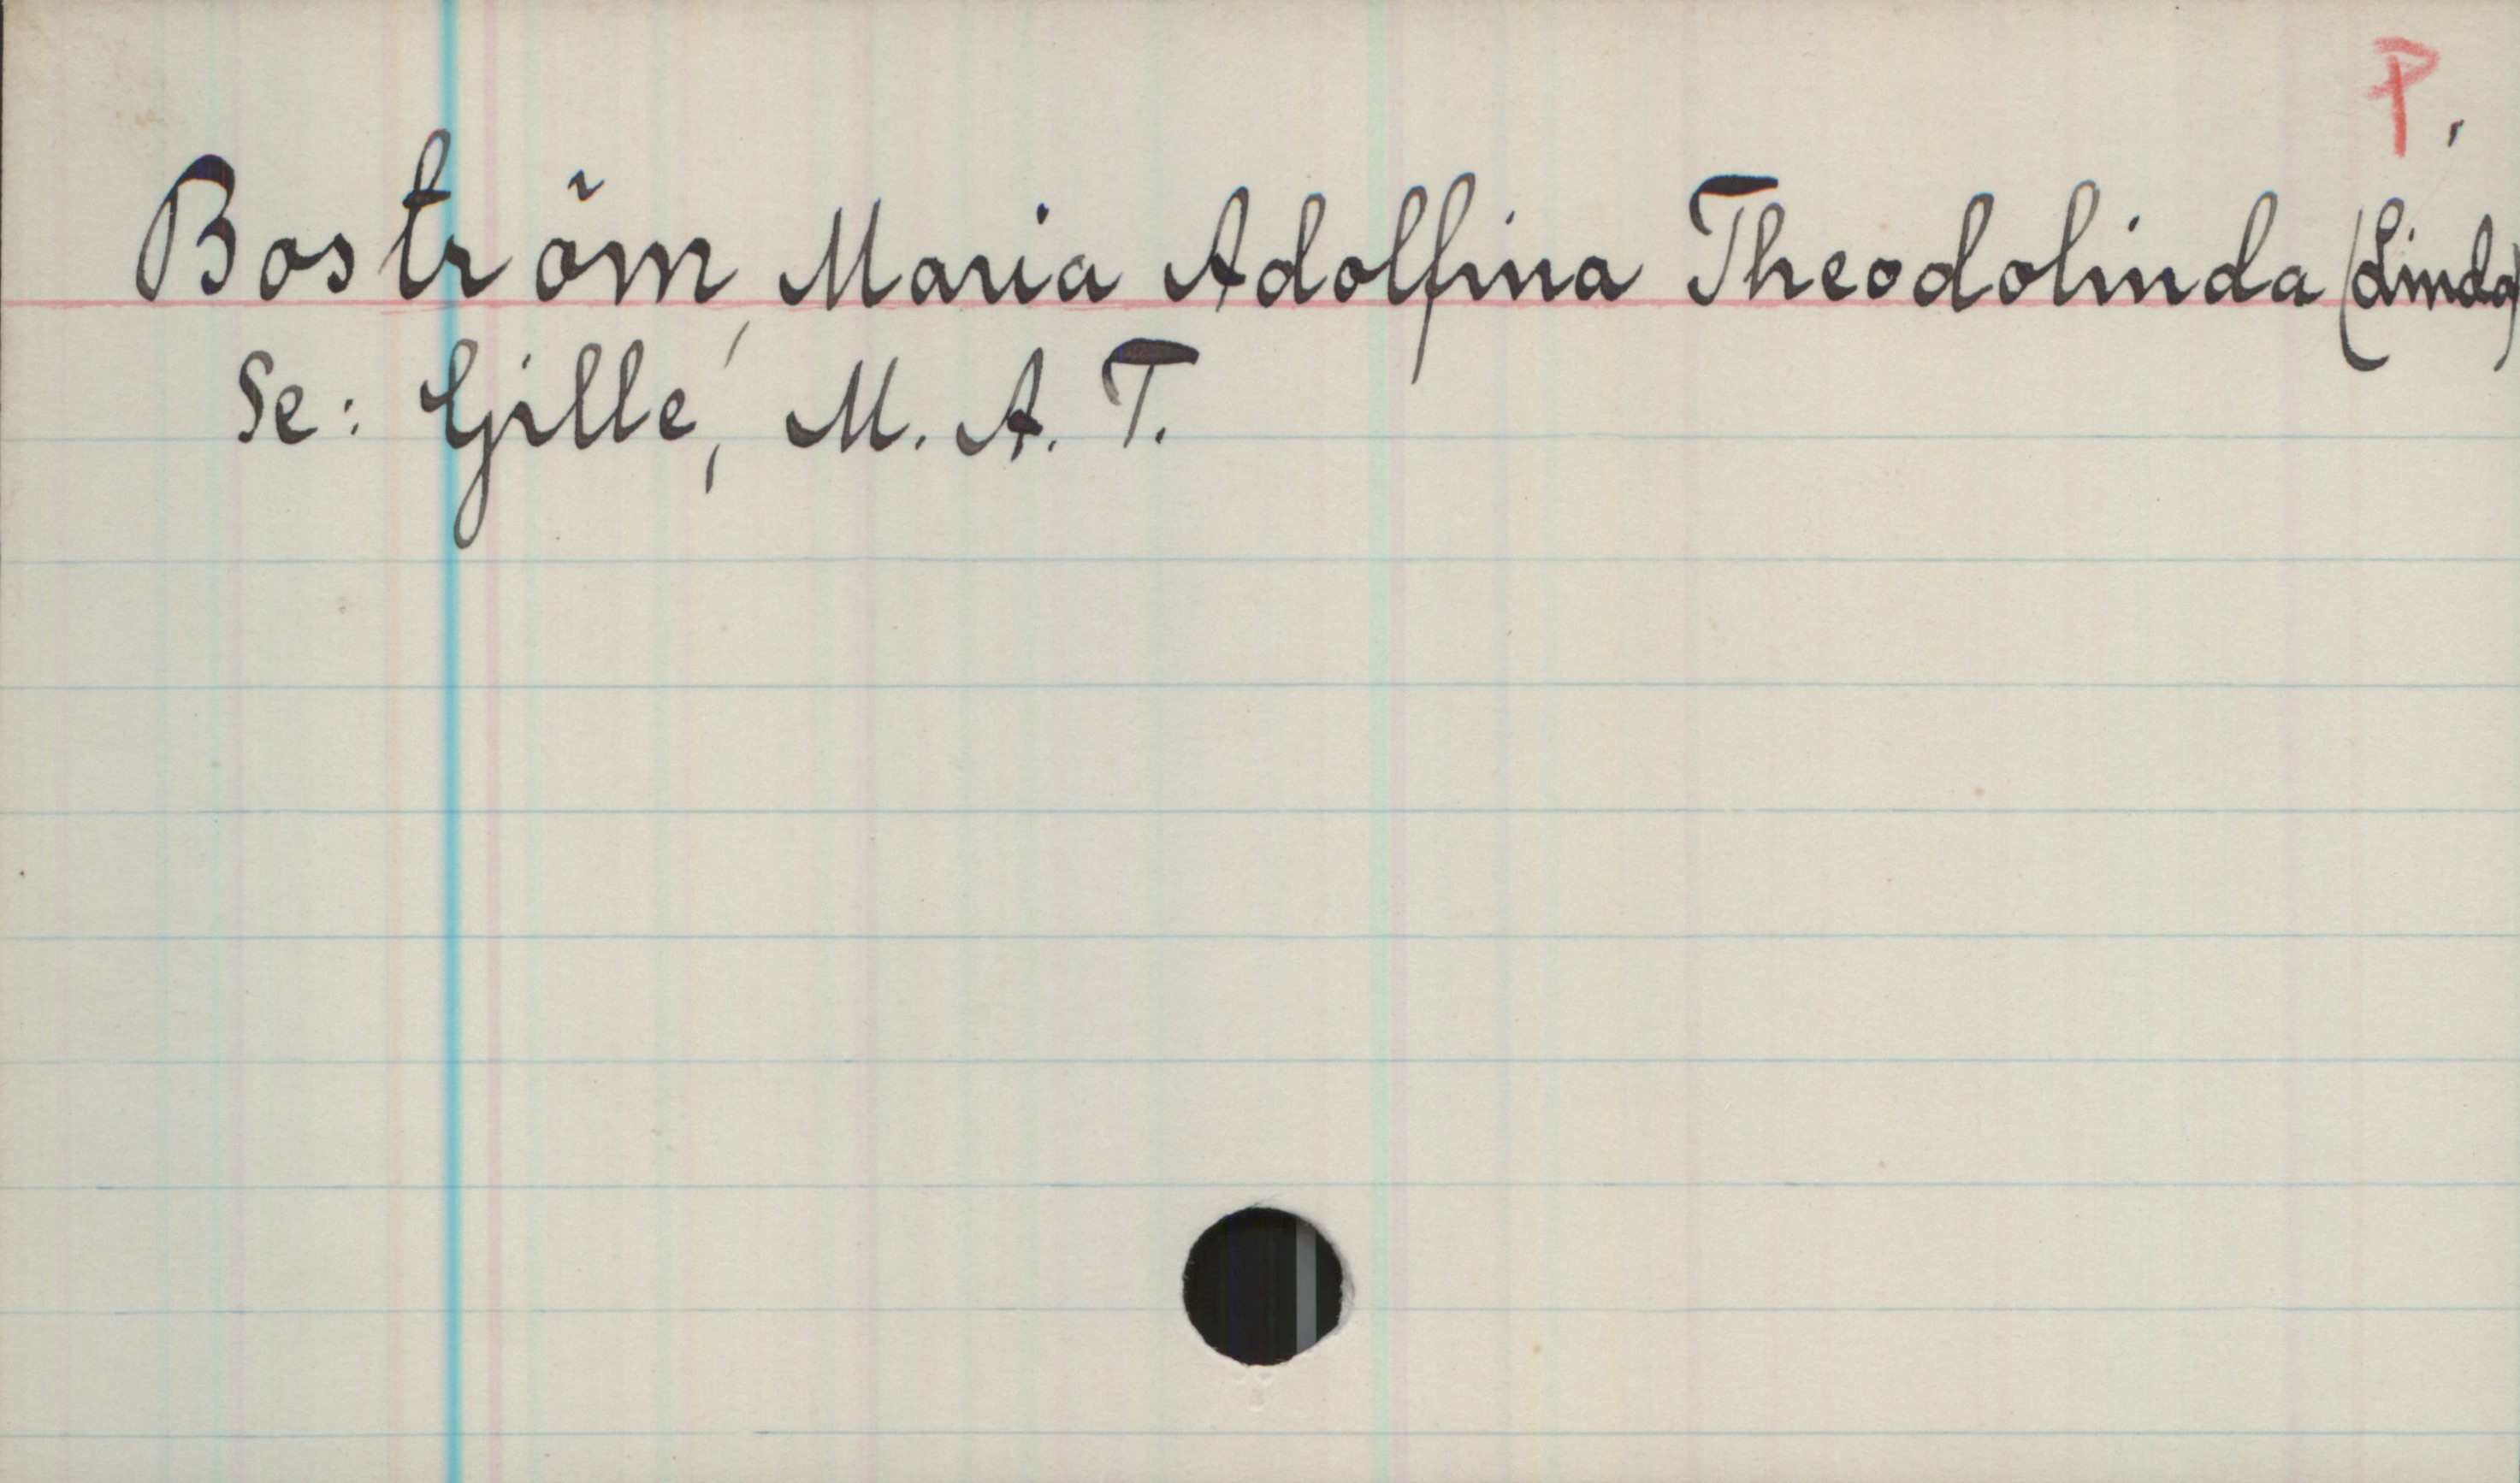 P.
Boström, Maria Adolfina Theodolinda (Linda)
Se: Gille, M. A. T.